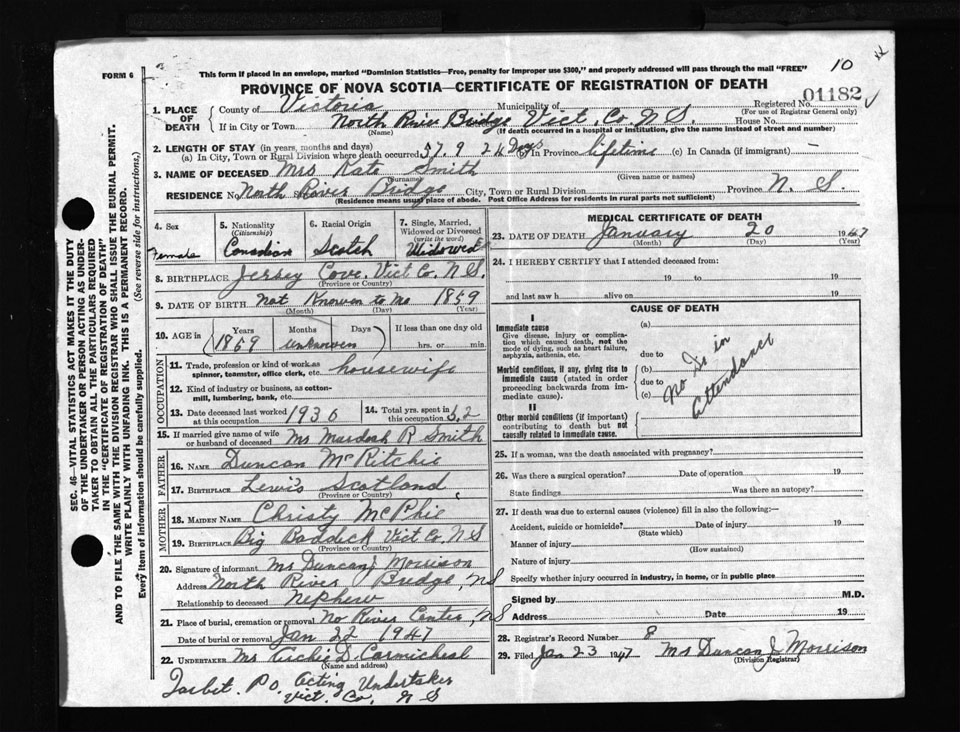 10
FORM 6
This form if placed in an envelope, marked "Dominion Statistics—Free, penalty for improper use $300," and properly addressed will pass through the mail "FREE"
PROVINCE OF NOVA SCOTIA—CERTIFICATE OF REGISTRATION OF DEATH
01182
1. PLACE OF DEATH
County of Victoria Municipality of Registered No.
(For use of Registrar General only)
If in City or Town North River Bridge Vict. Co. N S. House No.
(Name) (If death occurred in a hospital or institution, give the name instead of street and number)
2. LENGTH OF STAY (in years, months and days)
(a) In City, Town or Rural Division where death occurred 9 24 Days (b) In Province lifetime (c) In Canada (if immigrant) —
3. NAME OF DECEASED Mrs Kate Smith
(Surname) (Given name or names)
RESIDENCE No North River Bridge City, Town or Rural Division Province N. S.
(Residence means usual place of abode. Post Office Address for residents in rural parts not sufficient)
4. Sex
Female
5. Nationality
(Citizenship)
Canadian
6. Racial Origin
Scotch
7. Single, Married, Widowed or Divorced
(write the word)
Widowed
8. BIRTHPLACE Jersey Cove. Vict Co. N S.
(Province or Country)
9. DATE OF BIRTH Not Known to Me 1859
(Month) (Day) (Year)
10. AGE in Years Months Days If less than one day old
1859 unknown hrs. or min.
OCCUPATION
11. Trade, profession or kind of work as spinner, teamster, office clerk, etc. housewife
12. Kind of industry or business, as cotton-mill, lumbering, bank, etc.
13. Date deceased last worked at this occupation 1936
14. Total yrs. spent in this occupation 52
15. If married give name of wife or husband of deceased Mr Murdoch R Smith
FATHER
16. NAME Duncan McRitchie
17. BIRTHPLACE Lewis Scotland,
(Province or Country)
MOTHER
18. MAIDEN NAME Christy McPhie
19. BIRTHPLACE Big Baddeck Vict Co. N S
(Province or Country)
20. Signature of informant Mr Duncan J Morrison
Address North River Bridge, N S
Relationship to deceased Nephew
21. Place of burial, cremation or removal No River Center, N S
Date of burial or removal Jan 22 1947
22. UNDERTAKER Mr Archie D. Carmichael
(Name and address)
Tarbet. P O Acting Undertaker
Vict. Co. N S
MEDICAL CERTIFICATE OF DEATH
23. DATE OF DEATH January 20 1947
(Month) (Day) (Year)
24. I HEREBY CERTIFY that I attended deceased from:
19 to 19
and last saw h alive on 19
CAUSE OF DEATH
I
Immediate cause
Give disease, injury or complication which caused death, not the mode of dying, such as heart failure, asphyxia, asthenia, etc.
Morbid conditions, if any, giving rise to immediate cause (stated in order proceeding backwards from immediate cause).
II
Other morbid conditions (if important) contributing to death but not causally related to immediate cause.
(a)
due to
(b)
due to
(c)
No Dr in
attendance
25. If a woman, was the death associated with pregnancy?
26. Was there a surgical operation? Date of operation 19
State findings Was there an autopsy?
27. If death was due to external causes (violence) fill in also the following:—
Accident, suicide or homicide? Date of injury 19
(State which)
Manner of injury
(How sustained)
Nature of injury
Specify whether injury occurred in industry, in home, or in public place
Signed by M.D.
Address Date 19
28. Registrar's Record Number 8
29. Filed Jan 23 1947 Mr Duncan J Morrison
(Division Registrar)
SEC. 46—VITAL STATISTICS ACT MAKES IT THE DUTY
OF THE UNDERTAKER OR PERSON ACTING AS UNDERTAKER TO OBTAIN ALL THE PARTICULARS REQUIRED
IN THE "CERTIFICATE OF REGISTRATION OF DEATH"
AND TO FILE THE SAME WITH THE DIVISION REGISTRAR WHO SHALL ISSUE THE BURIAL PERMIT.
WRITE PLAINLY WITH UNFADING INK. THIS IS A PERMANENT RECORD.
Every item of information should be carefully supplied. (See reverse side for instructions.)